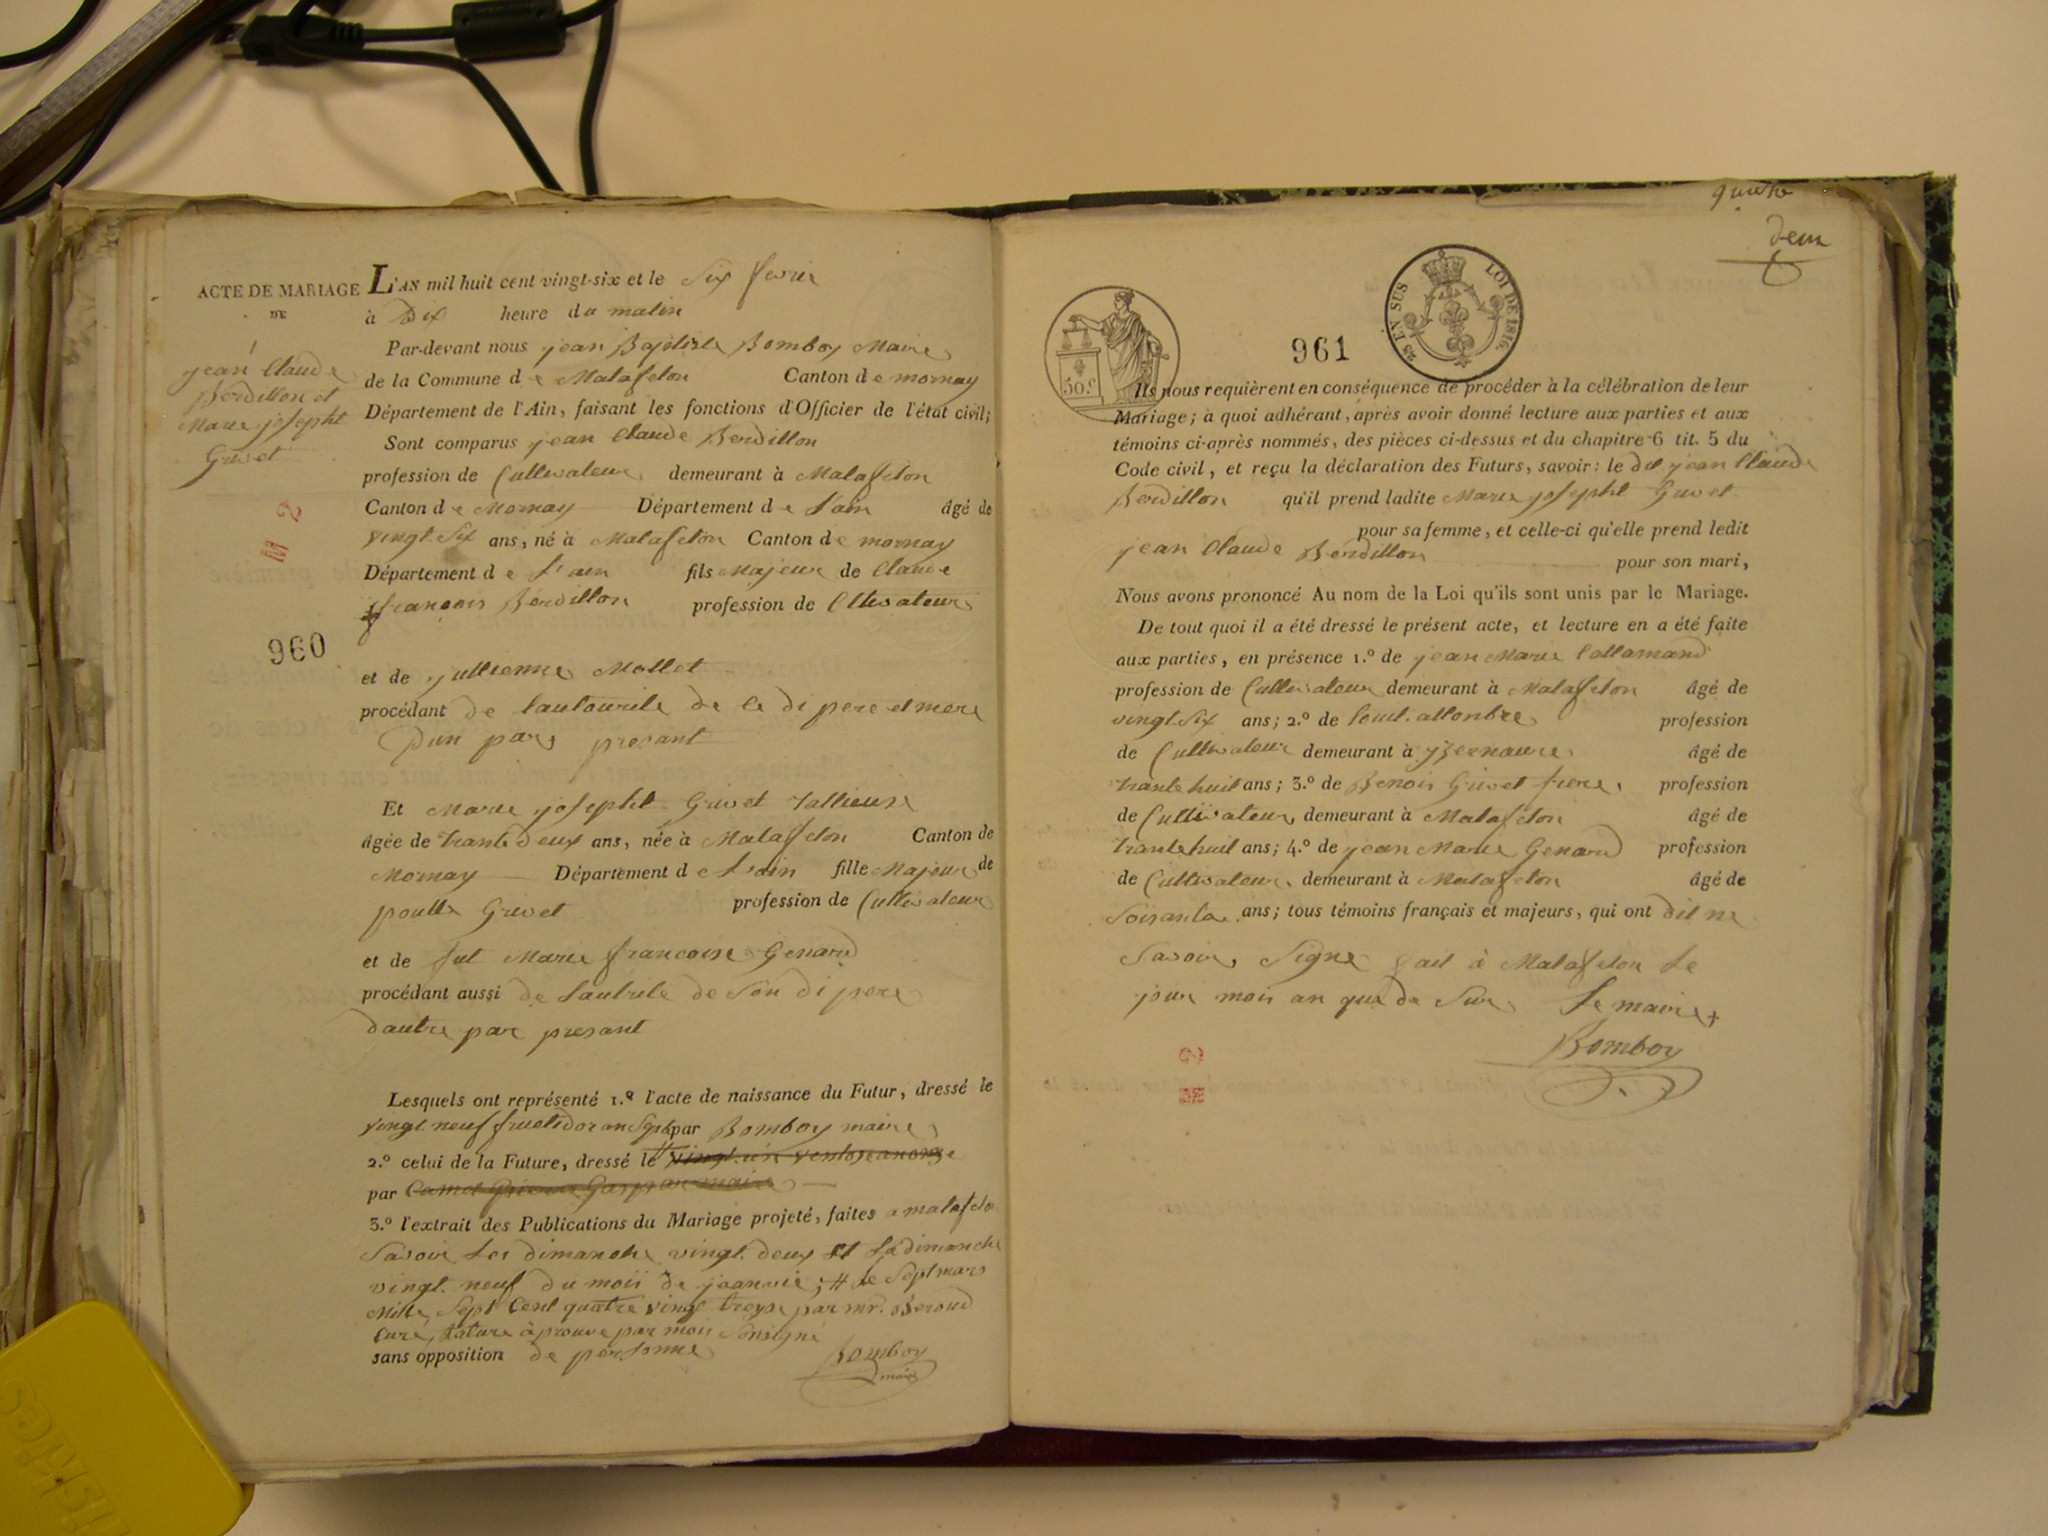 ACTE DE MARIAGE
DE
jean Claude
Berdillon et
Marie josepht
Grivet
M 2
960
L'AN mil huit cent vingt-six et le Six fevrie
à Dix heure du matin
Par-devant nous jean Baptiste Bomboy Maire
de la Commune de Matafelon Canton de mornay
Département de l'Ain, faisant les fonctions d'Officier de l'état civil;
Sont comparus jean Claude Berdillon
profession de Cultivateur demeurant à Matafelon
Canton de Mornay Département de L'ain âgé de
vingt Six ans, né à Matafelon Canton de mornay
Département de L'ain fils Majeur de Claude
francois Berdillon profession de Cltivateur
et de jullienne Mollet
procédant de lautourite de ce di pere et mere
Dun par presant
Et Marie josepht Grivet tallieuse
âgée de trante deux ans, née à Matafelon Canton de
Mornay Département de L'ain fille Majeur de
Grivet profession de Cultivateur
et de fut Marie francoise Genard
procédant aussi de lautrite de Son di pere
dautre par presant
Lesquels ont représenté 1.º l'acte de naissance du Futur, dressé le
vingt neuf fructidor an Sept par Bomboy maire
2.º celui de la Future, dressé le # vingt un ventose an onze
par
3.º l'extrait des Publications du Mariage projeté, faites a matafelon
Savoir Les dimanche vingt deux et Le dimanche
vingt neuf du mois de jeanvie; # Le Sept mars
Mille Sept Cent quatre vingt treyse par mr. Beroud
Curé, rature àprouve par mois Sonsigné
sans opposition de personne
Bomboy
maire
quate
deux
25 EN SUS LOI DE 1816.
50 C
961
Ils nous requièrent en conséquence de procéder à la célébration de leur
Mariage; à quoi adhérant, après avoir donné lecture aux parties et aux
témoins ci-après nommés, des pièces ci-dessus et du chapitre 6 tit. 5 du
Code civil, et reçu la déclaration des Futurs, savoir: le dit jean Claude
Berdillon qu'il prend ladite Marie josepht Grivet
pour sa femme, et celle-ci qu'elle prend ledit
jean Claude Berdillon pour son mari,
Nous avons prononcé Au nom de la Loi qu'ils sont unis par le Mariage.
De tout quoi il a été dressé le présent acte, et lecture en a été faite
aux parties, en présence 1.º de jean Marie Callamand
profession de Cultivateur demeurant à Matafelon âgé de
vingt Six ans; 2.º de Louit allombre profession
de Cultivateur demeurant à âgé de
trante huit ans; 3.º de Benoit Grivet frere profession
de Cultivateur demeurant à Matafelon âgé de
trante huit ans; 4.º de jean Marie Genard profession
de Cultivateur demeurant à Matafelon âgé de
Soisante ans; tous témoins français et majeurs, qui ont dit ne
Savoir Signe fait à Matafelon Le
jour mois an que de Sur Le maire
Bomboy
M 2